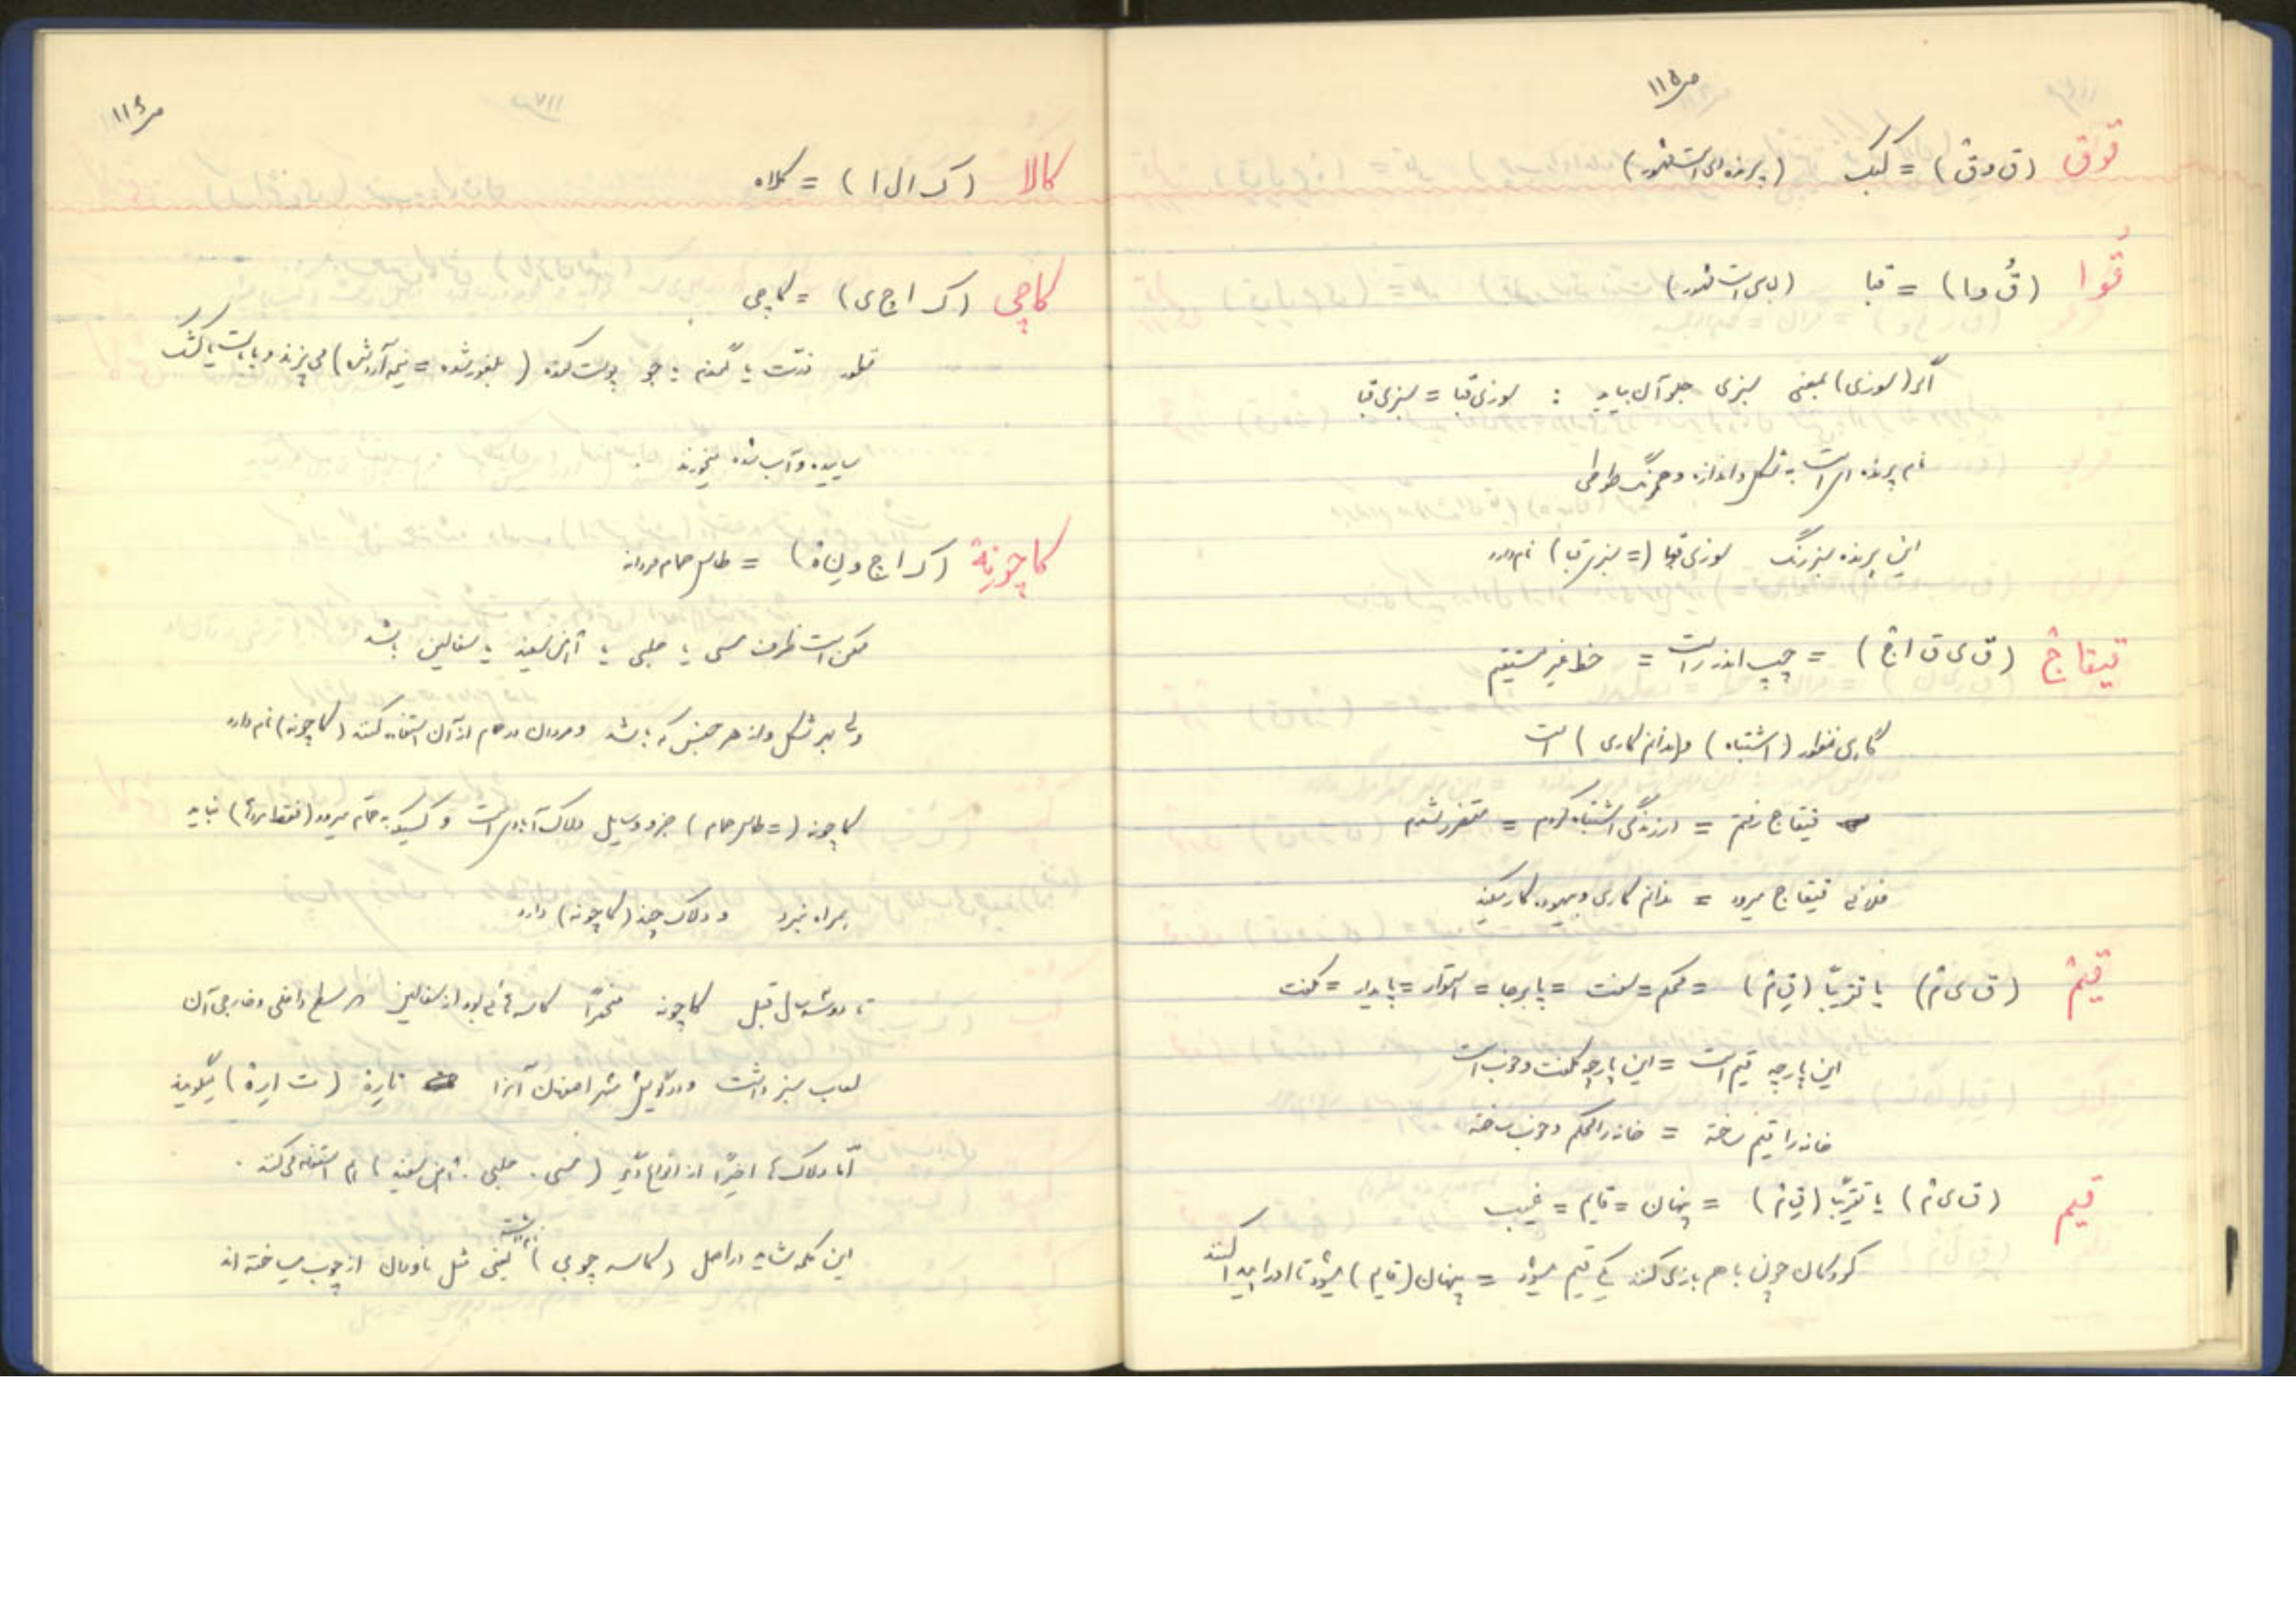 ص ۱۱۵
قوق (ق و ق) = کبک (پرنده ای است مشهور)
قُوا (قُ و ا) = قبا (لباسی است مشهور)
اگر (سوزی) بمعنی سبزی جلو آن بیاید : سوزی قبا = سبزی قبا
نام پرنده ای است به شکل و اندازه و همرنگ طوطی
این پرنده سبز رنگ سوزی قبا (= سبزی قبا) نام دارد
قیقاج (ق ی ق ا ج) = چپ اندر راست = خط غیر مستقیم
گاهی منظور (اشتباه) و (ندانم کاری) است
قیقاج رفتم = در زندگی اشتباه کردم = متضرر شدم
فلانی قیقاج میرود = ندانم کاری و بیهوده کار میکند
قیم (ق ی م) یا تقریباً (قِ م) = محکم = سفت = پابرجا = استوار = پایدار = کلفت
این پارچه قیم است = این پارچه کلفت و خوب است
خانه را قیم ساخته = خانه را محکم و خوب ساخته
قیم (ق ی م) یا تقریباً (قِ م) = پنهان = قایم = غیب
کودکان چون با هم بازی کنند یکی قیم میشود = پنهان (قایم) میشود تا او را پیدا کنند
ص ۱۱۶
کالا (ک ا ل ا) = کلاه
کاچی (ک ا چ ی) = کاچی
ذرّت یا گندم یا جو پوست کنده (بلغور شده = نیمه آردش) می پزند و با ماست یا کشک
ساییده و آب شده میخورند
کاچونِة (ک ا چ و نِ ة) = طاس حمام مردانه
ممکن است ظرف مسی یا حلبی یا آهن سفید یا سفالین باشد
ولی بهر شکل و از هر جنس که باشد و مردان در حمام از آن استفاده کنند (کاچونه) نام دارد
کاچونه (= طاس حمام) جزو وسایل دلاک آبادی است و کسیکه به حمام میرود (فقط مردها) نباید
همراه ببرد و دلاک چند (کاچونه) دارد
تا دویست سال قبل کاچونه منحصراً کاسه هائی بود از سفالین که سطح داخلی و خارجی آن
لعاب سبز داشت و در گویش شهر اصفهان آنرا تارِة (ت ا رِ ة) میگویند
امّا دلاک ها اخیراً از انواع دیگر (مسی . حلبی . آهن سفید) هم استفاده می کنند .
این کلمه شاید در اصل (کاسه چوبی) بوده است یعنی مثل ناودان از چوب میساخته اند